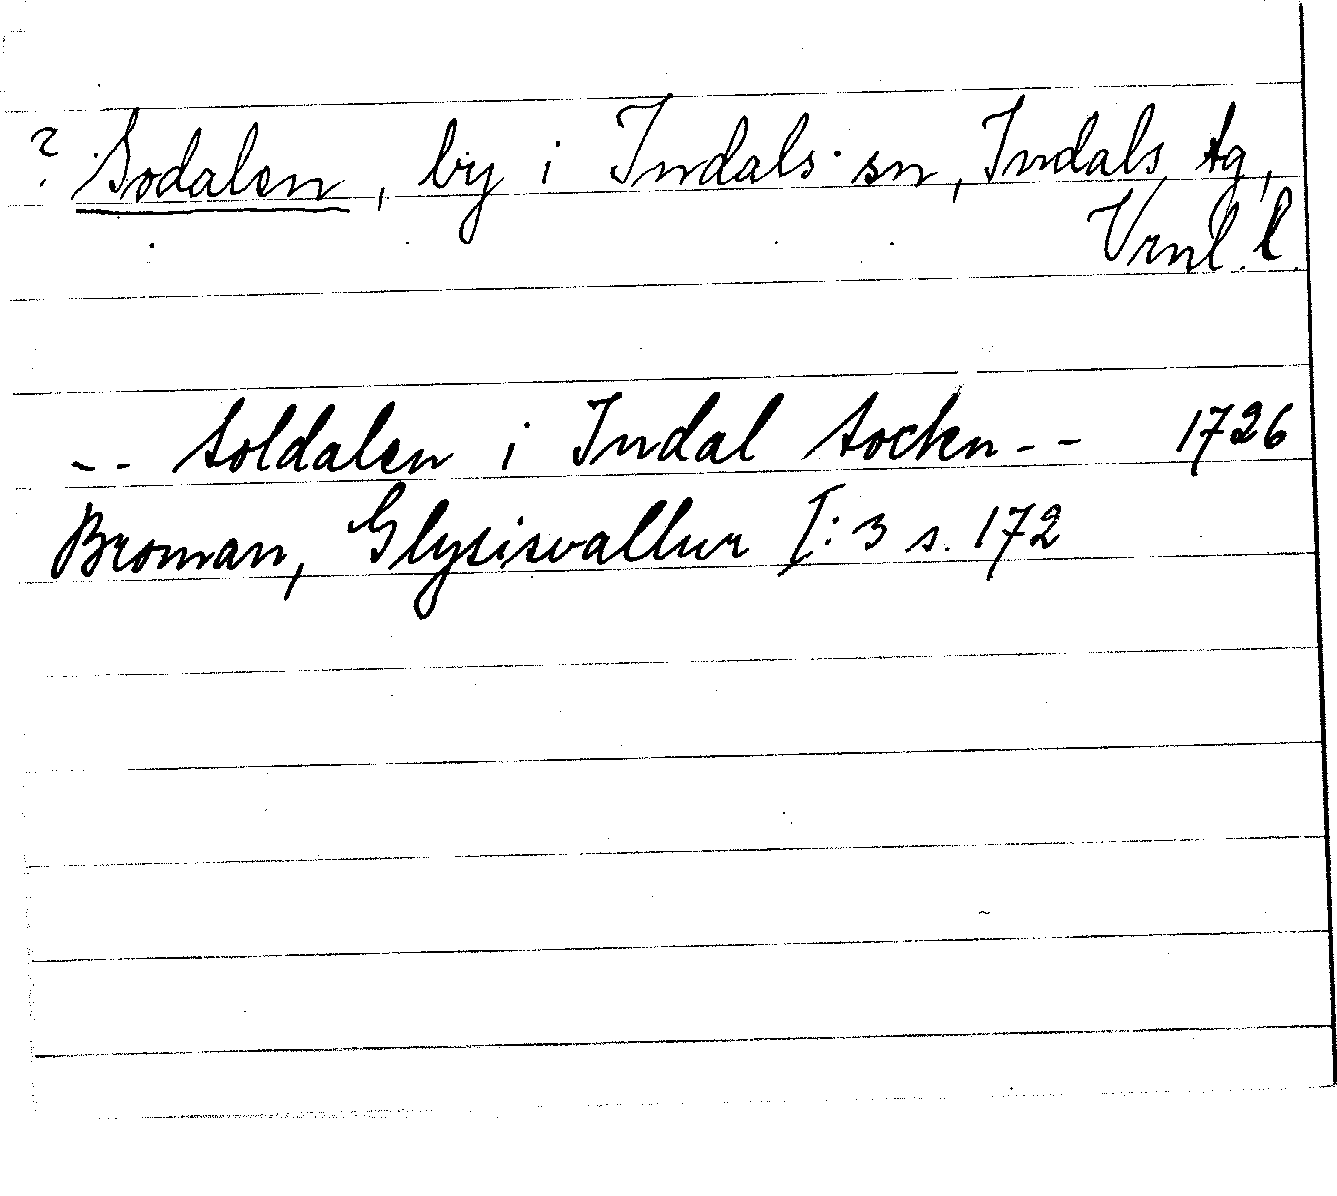 ? Sodalen, by i Indals sn, Indals tg,
Vrnl. l.
-- Soldalen i Indal Socken -- 1726
Broman, Glysisvallur I:3 s. 172